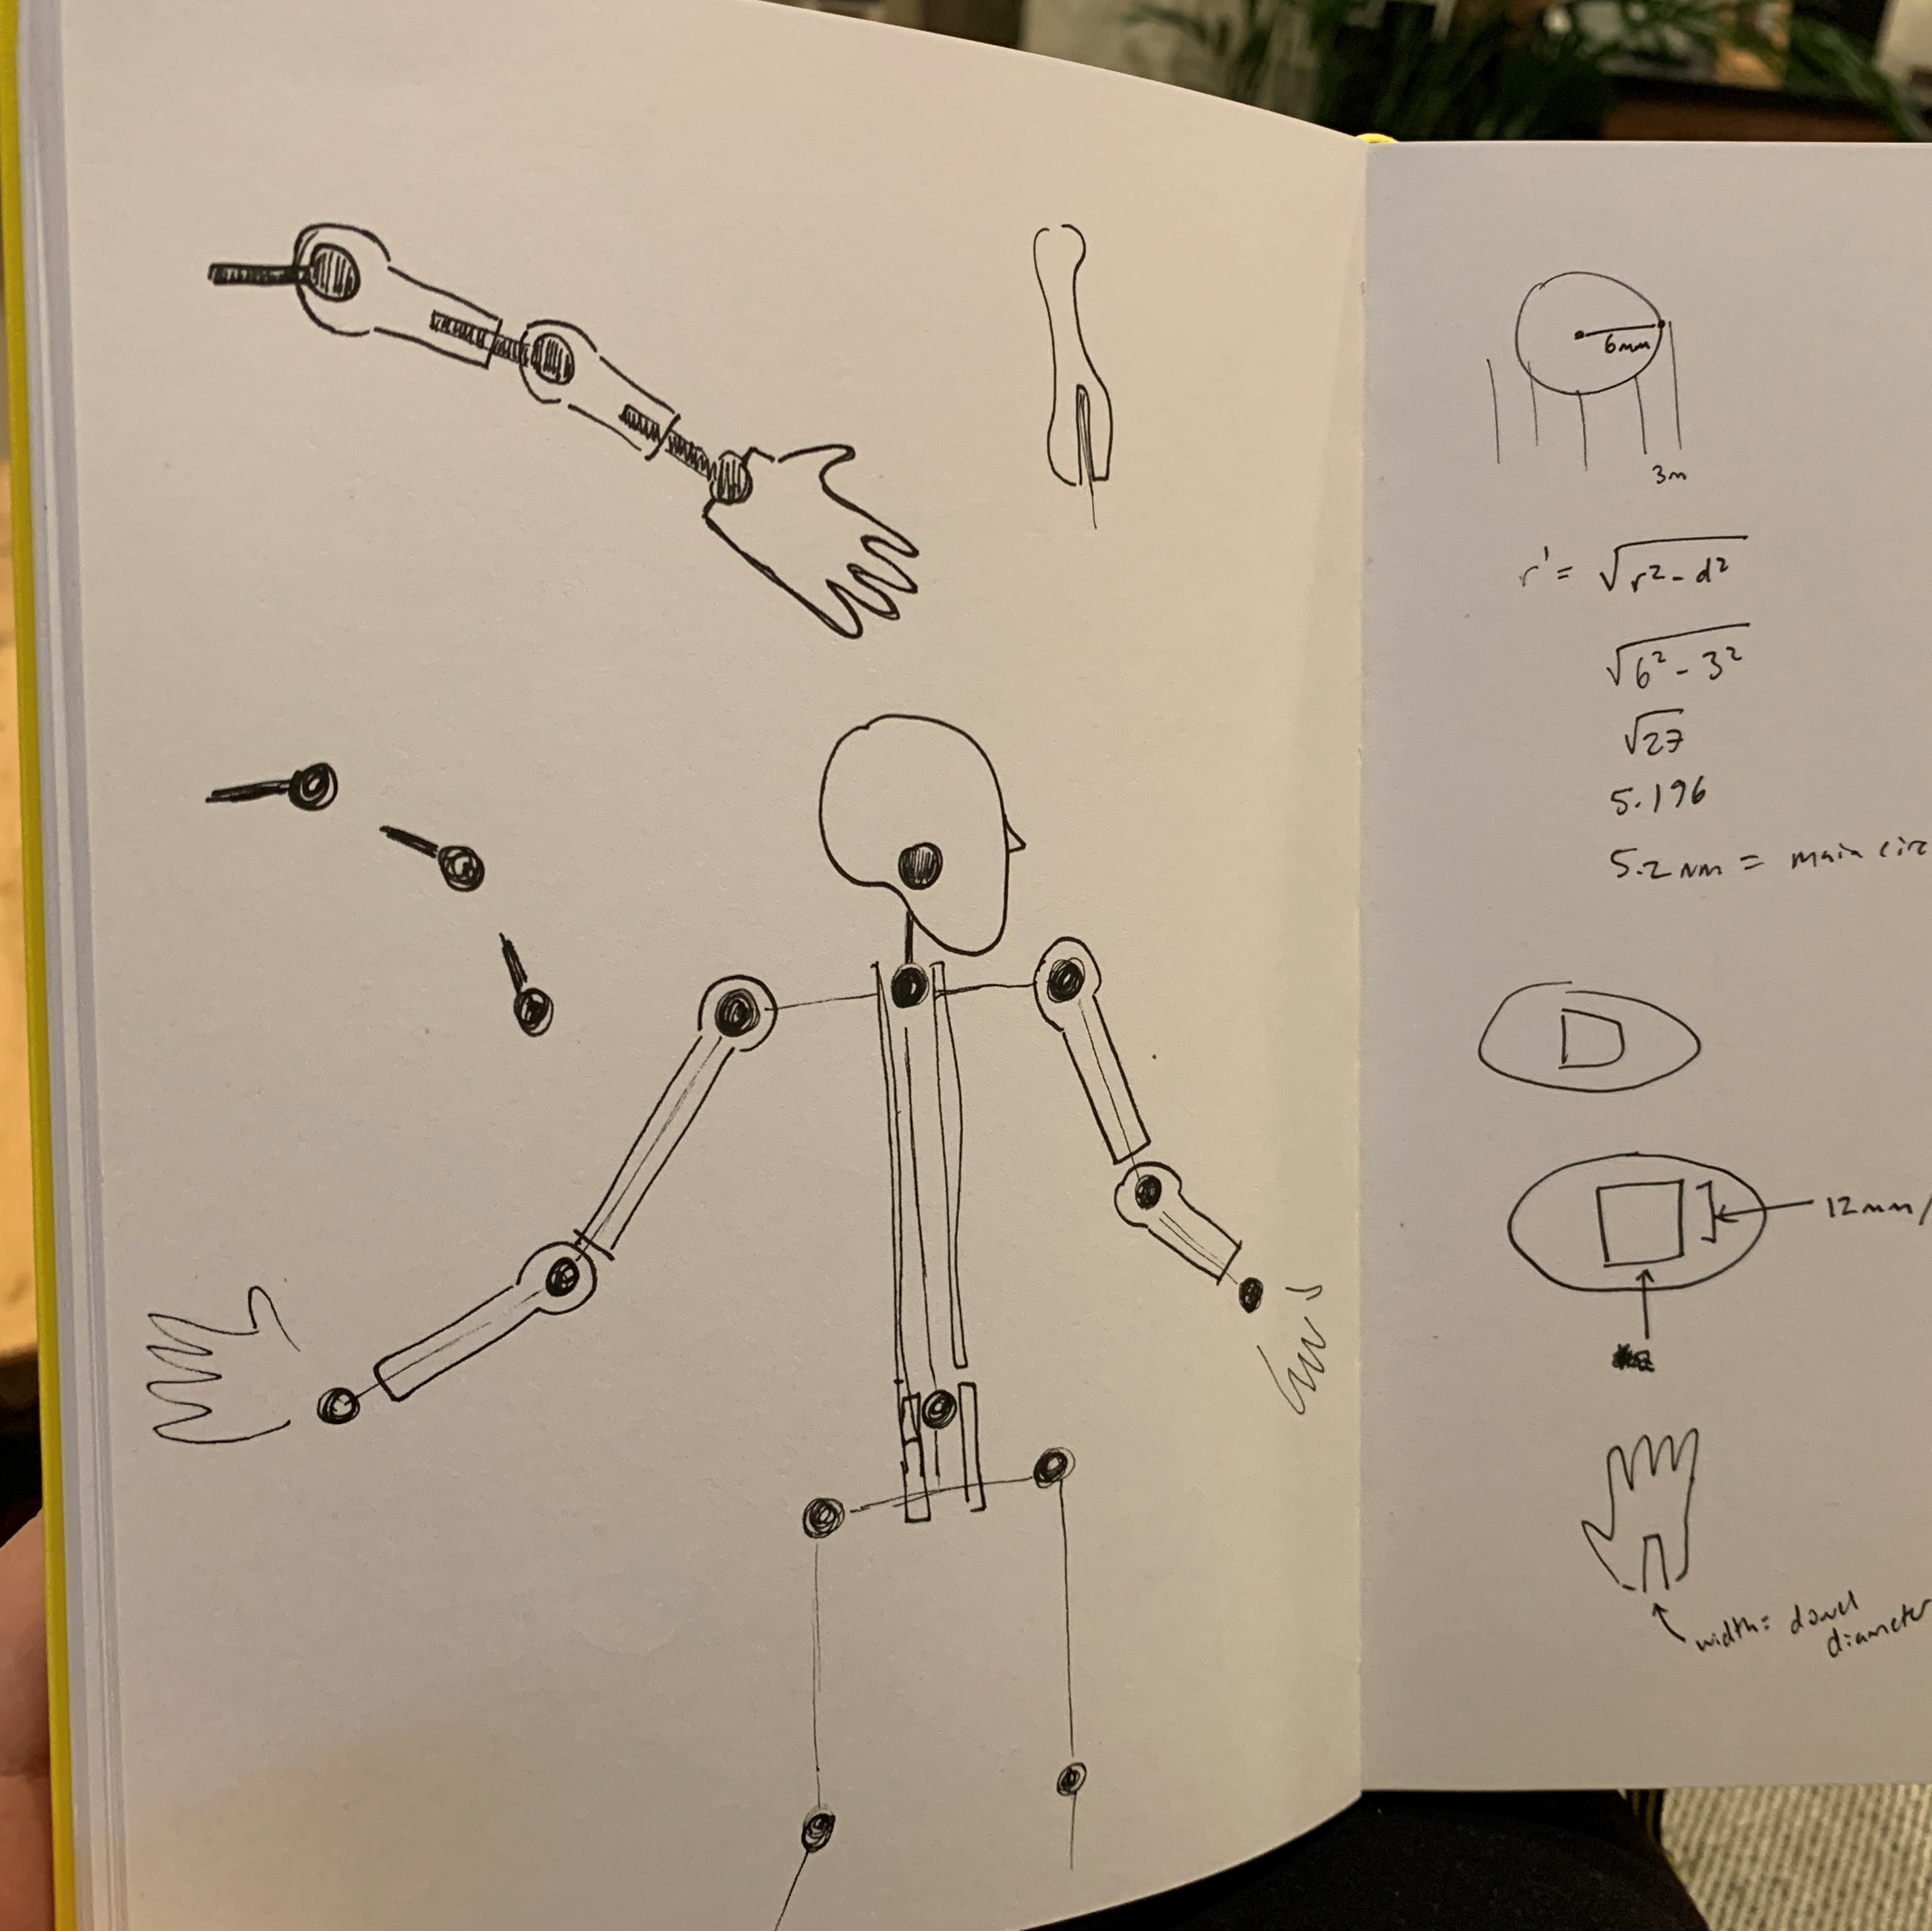 6mm
3m
r' = √r² - d²
√6² - 3²
√27
5.196
5.2 mm = main circ
D
12mm/
width = dowel
diameter